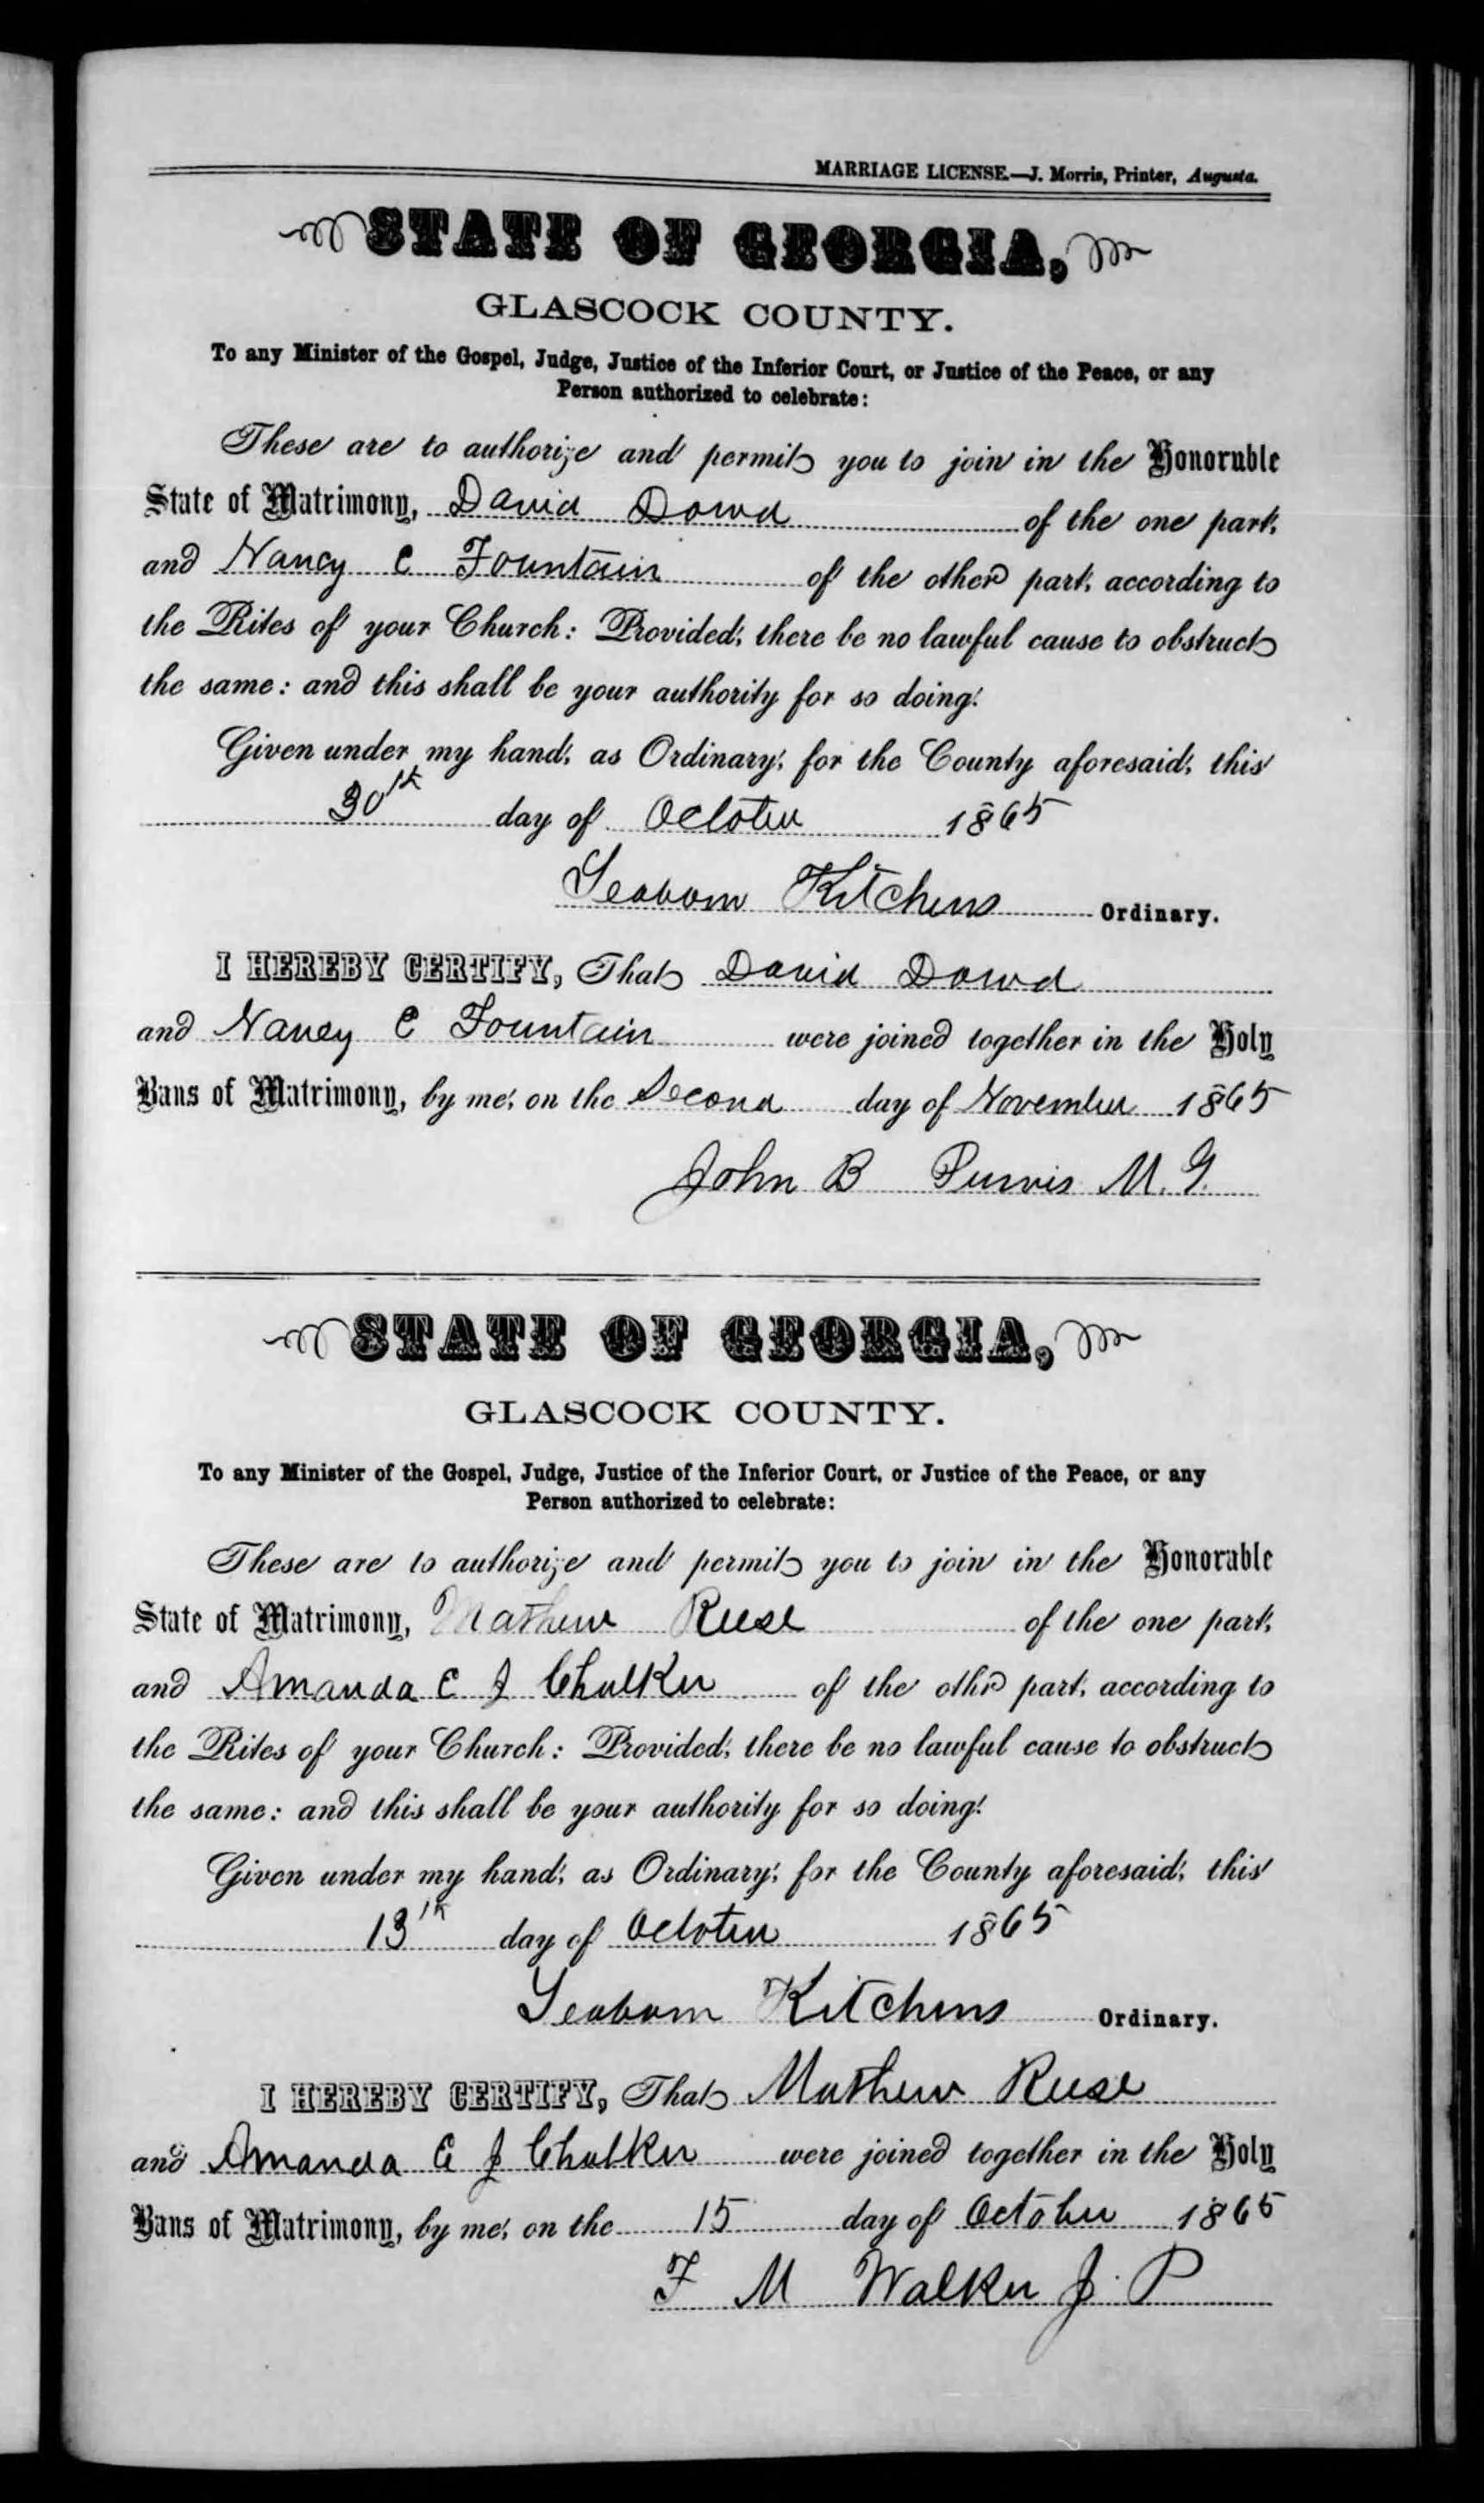 MARRIAGE LICENSE.—J. Morris, Printer, Augusta.
STATE OF GEORGIA,
GLASCOCK COUNTY.
To any Minister of the Gospel, Judge, Justice of the Inferior Court, or Justice of the Peace, or any
Person authorized to celebrate:
These are to authorize and permit you to join in the Honorable
State of Matrimony, David Dowd of the one part,
and Nancy C Fountain of the other part, according to
the Rites of your Church: Provided, there be no lawful cause to obstruct
the same: and this shall be your authority for so doing.
Given under my hand, as Ordinary, for the County aforesaid, this
30th day of October 1865
Seaborn Kitchens Ordinary.
I HEREBY CERTIFY, That David Dowd
and Nancy C Fountain were joined together in the Holy
Bans of Matrimony, by me, on the Second day of November 1865
John B Purvis M. G.
STATE OF GEORGIA,
GLASCOCK COUNTY.
To any Minister of the Gospel, Judge, Justice of the Inferior Court, or Justice of the Peace, or any
Person authorized to celebrate:
These are to authorize and permit you to join in the Honorable
State of Matrimony, Mathew Reese of the one part,
and Amanda E J Chalker of the othr part, according to
the Rites of your Church: Provided, there be no lawful cause to obstruct
the same: and this shall be your authority for so doing.
Given under my hand, as Ordinary, for the County aforesaid, this
13th day of October 1865
Seaborn Kitchens Ordinary.
I HEREBY CERTIFY, That Mathew Reese
and Amanda E J Chalker were joined together in the Holy
Bans of Matrimony, by me, on the 15 day of October 1865
F M Walker J. P